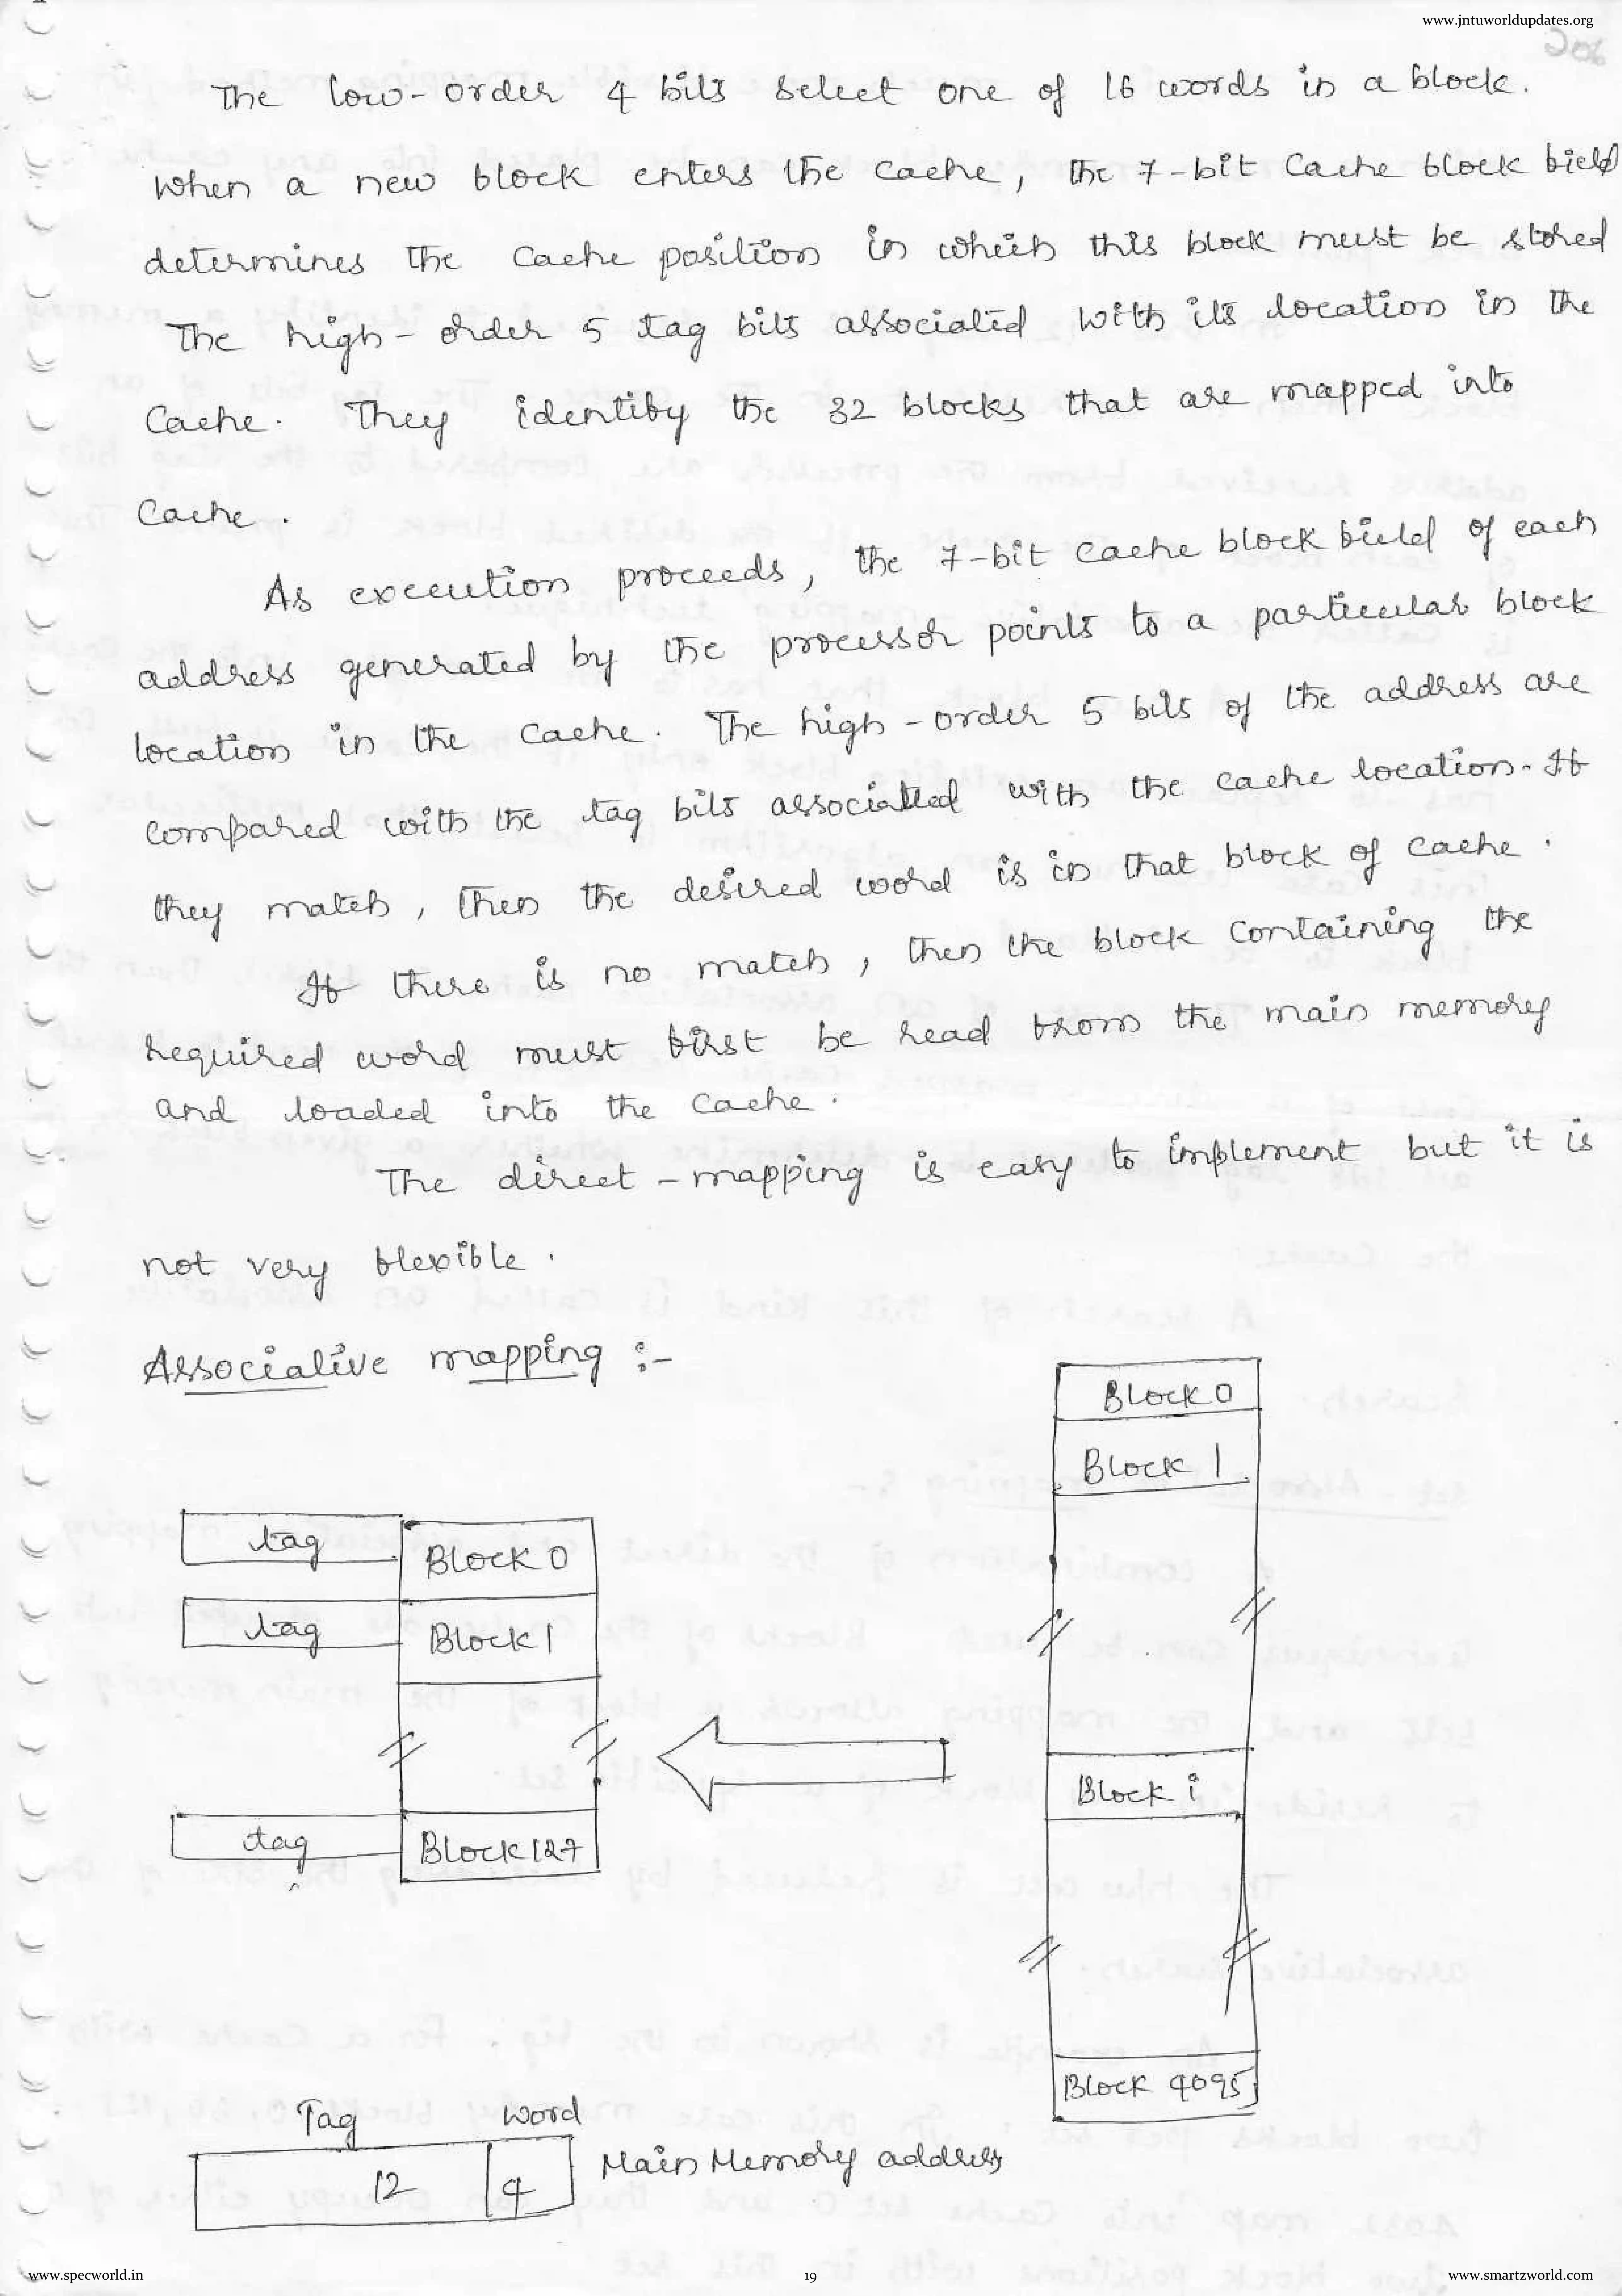 www.jntuworldupdates.org
206
The low-order 4 bits select one of 16 words in a block.
When a new block enters the cache, the 7-bit cache block field
determines the cache position in which this block must be stored
The high-order 5 tag bits associated with its location in the
Cache. They identify the 32 blocks that are mapped into
Cache.
As execution proceeds, the 7-bit cache block field of each
address generated by the processor points to a particular block
location in the cache. The high-order 5 bits of the address are
compared with the tag bits associated with the cache location. If
they match, then the desired word is in that block of cache.
If there is no match, then the block containing the
required word must first be read from the main memory
and loaded into the cache.
The direct-mapping is easy to implement but it is
not very flexible.
Associative mapping :-
Block 0
Block 1
tag
Block 0
tag
Block 1
Block i
tag
Block 127
Block 4095
Tag Word
12 4
Main Memory address
www.specworld.in
19
www.smartzworld.com